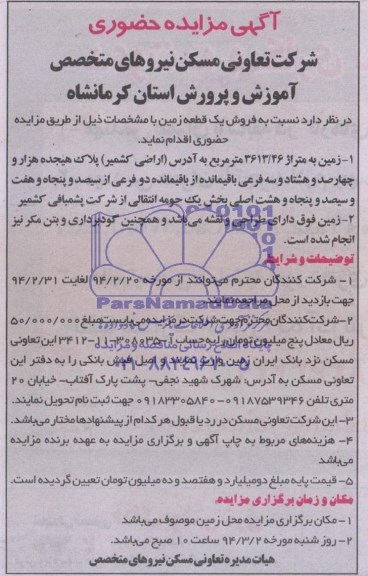 آگهی مزایده حضوری
شرکت تعاونی مسکن نیروهای متخصص
آموزش و پرورش استان کرمانشاه
در نظر دارد نسبت به فروش یک قطعه زمین با مشخصات ذیل از طریق مزایده
حضوری اقدام نماید.
۱-زمین به متراژ ۳۶۱۳/۴۶ مترمربع به آدرس (اراضی کشمیر) پلاک هیجده هزار و
چهارصد و هشتاد و سه فرعی باقیمانده از باقیمانده دو فرعی از سیصد و پنجاه و هفت
و سیصد و پنجاه و هشت اصلی بخش یک حومه انتقالی از شرکت پشمبافی کشمیر
۲-زمین فوق دارای طراحی و نقشه می‌باشد و همچنین گودبرداری و بتن مگر نیز
انجام شده است.
توضیحات و شرایط
۱- شرکت کنندگان محترم می‌توانند از مورخه ۹۴/۲/۲۰ لغایت ۹۴/۲/۳۱
جهت بازدید از محل مراجعه نمایند.
۲-شرکت‌کنندگان محترم جهت شرکت در مزایده می‌بایست مبلغ ۵۰/۰۰۰/۰۰۰
ریال معادل پنج میلیون تومان را به حساب آ-۳۰۸۰۳۵-۱۱-۳۴۱۲ این تعاونی
مسکن نزد بانک ایران زمین واریز نمایند و اصل فیش بانکی را به دفتر این
تعاونی مسکن به آدرس: شهرک شهید نجفی- پشت پارک آفتاب- خیابان ۲۰
متری تلفن ۰۹۱۸۷۵۳۹۳۴۶ - ۰۹۱۸۳۳۰۵۸۴۰ جهت ثبت نام تحویل نمایند.
۳-این شرکت تعاونی مسکن در رد یا قبول هر کدام از پیشنهادها مختار می‌باشد.
۴- هزینه‌های مربوط به چاپ آگهی و برگزاری مزایده به عهده برنده مزایده
می‌باشد.
۵- قیمت پایه مبلغ دومیلیارد و هفتصد و ده میلیون تومان تعیین گردیده است.
مکان و زمان برگزاری مزایده.
۱- مکان برگزاری مزایده محل زمین موصوف می‌باشد
۲- روز شنبه مورخه ۹۴/۳/۲ ساعت ۱۰ صبح می‌باشد.
هیات مدیره تعاونی مسکن نیروهای متخصص
ParsNamadData
۰۲۱-۸۸۳۴۹۶۷۰-۵